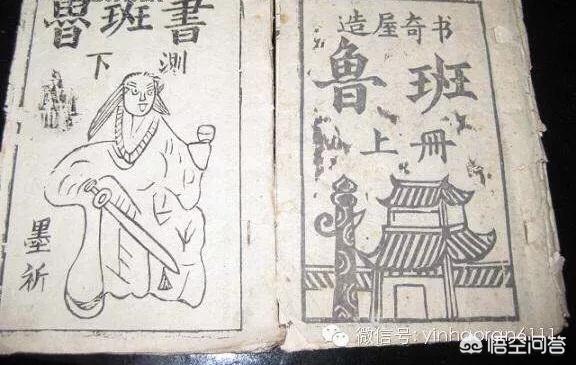 魯班書
下測
墨祈
造屋奇书
魯班
上冊
微信号: yinhaoran6111
悟空问答